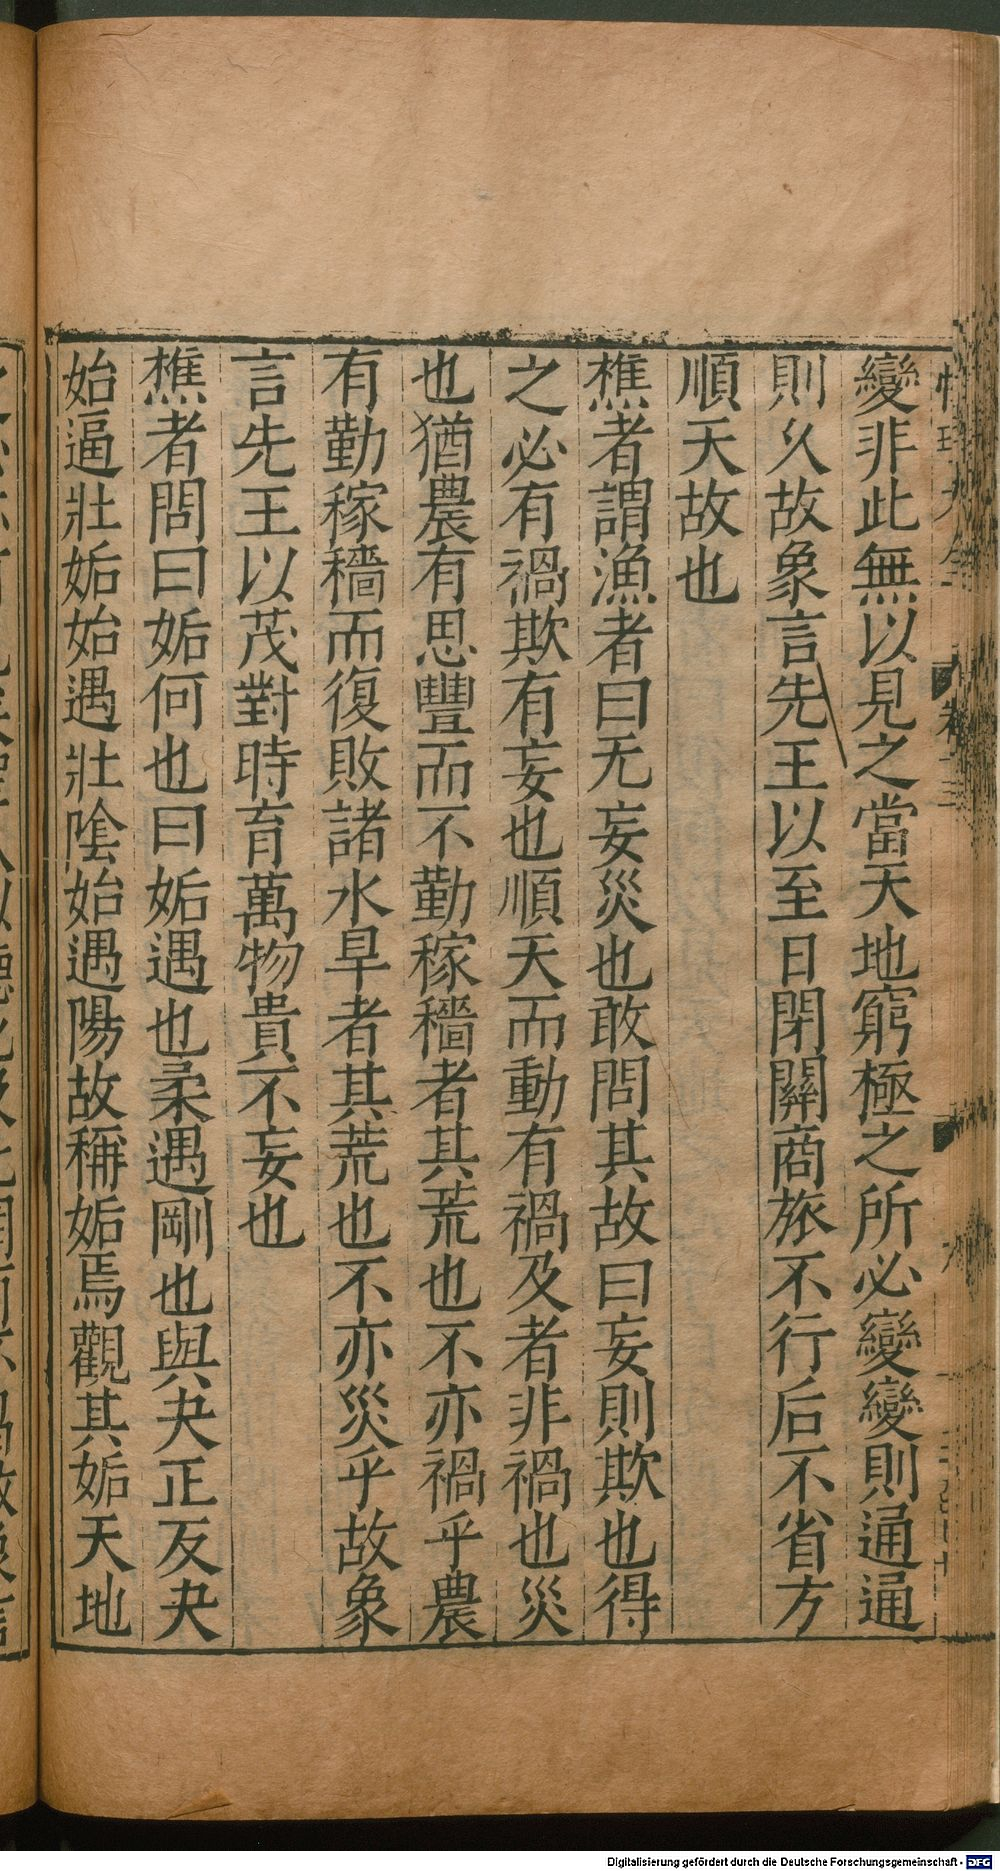 變非此無以見之當天地窮極之所必變變則通通
則久故象言先王以至日閉關商旅不行后不省方
順天故也
樵者謂漁者曰无妄災也敢問其故曰妄則欺也得
之必有禍欺有妄也順天而動有禍及者非禍也災
也猶農有思豐而不勤稼穡者其荒也不亦禍乎農
有勤稼穡而復敗諸水旱者其荒也不亦災乎故象
言先王以茂對時育萬物貴不妄也
樵者問曰姤何也曰姤遇也柔遇剛也與夬正反夬
始逼壯姤始遇壯陰始遇陽故稱姤焉觀其姤天地
Digitalisierung gefördert durch die Deutsche Forschungsgemeinschaft - DFG